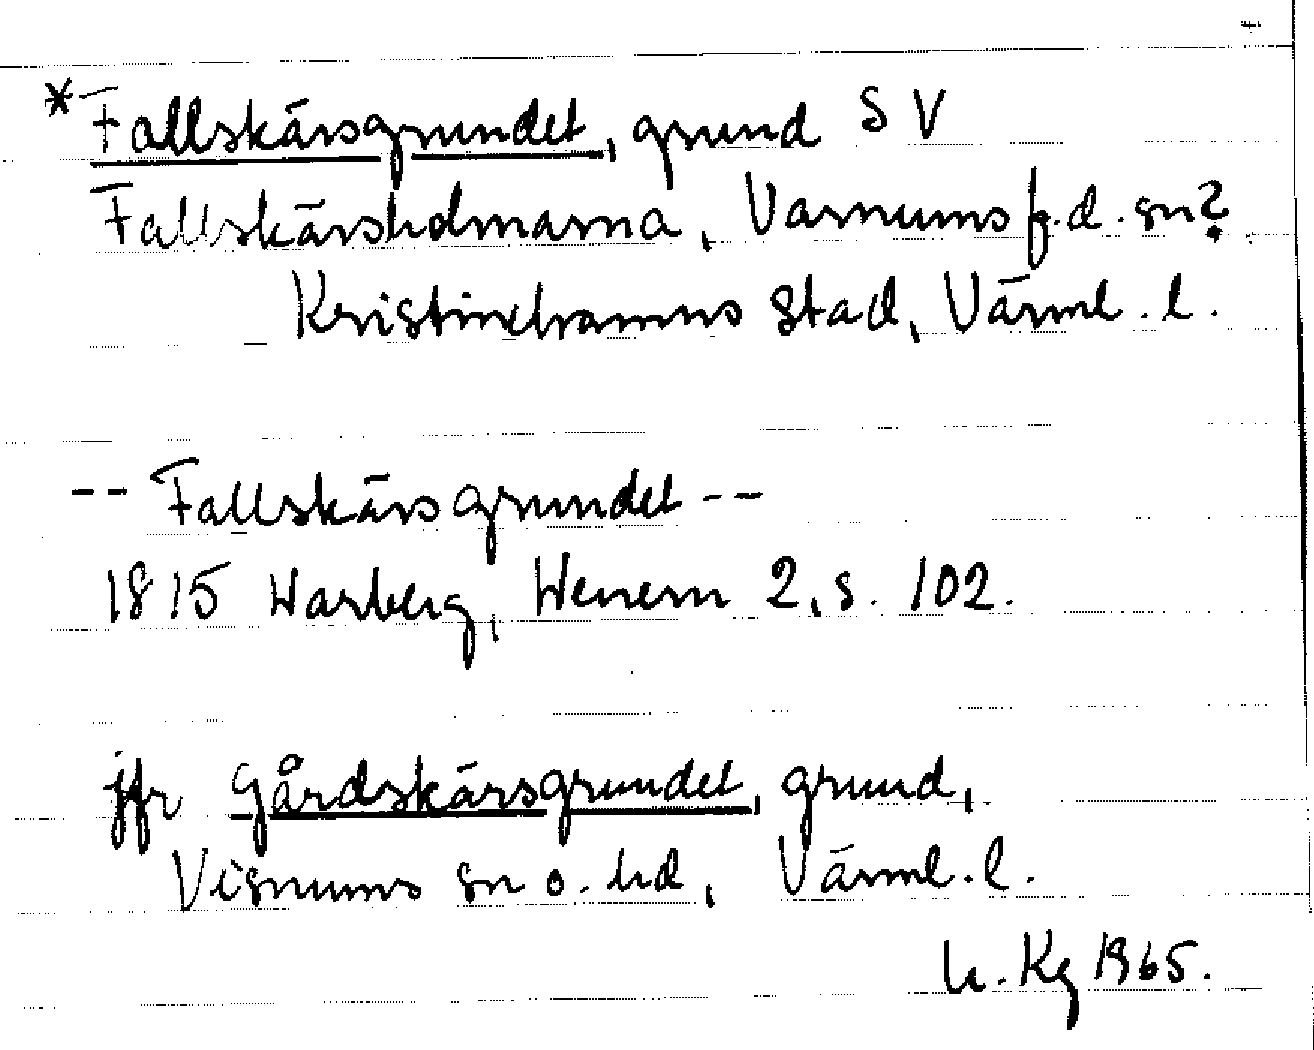 *Fallskärsgrundet, grund SV
Fallskärsholmarna, Varnums f.d. sn?
Kristinehamns stad, Värml. l.
-- Fallskärsgrundet --
1815 Warberg, Wenern 2, s. 102.
jfr Gårdskärsgrundet, grund,
Visnums sn o. hd, Värml. l.
U. Kg 1965.